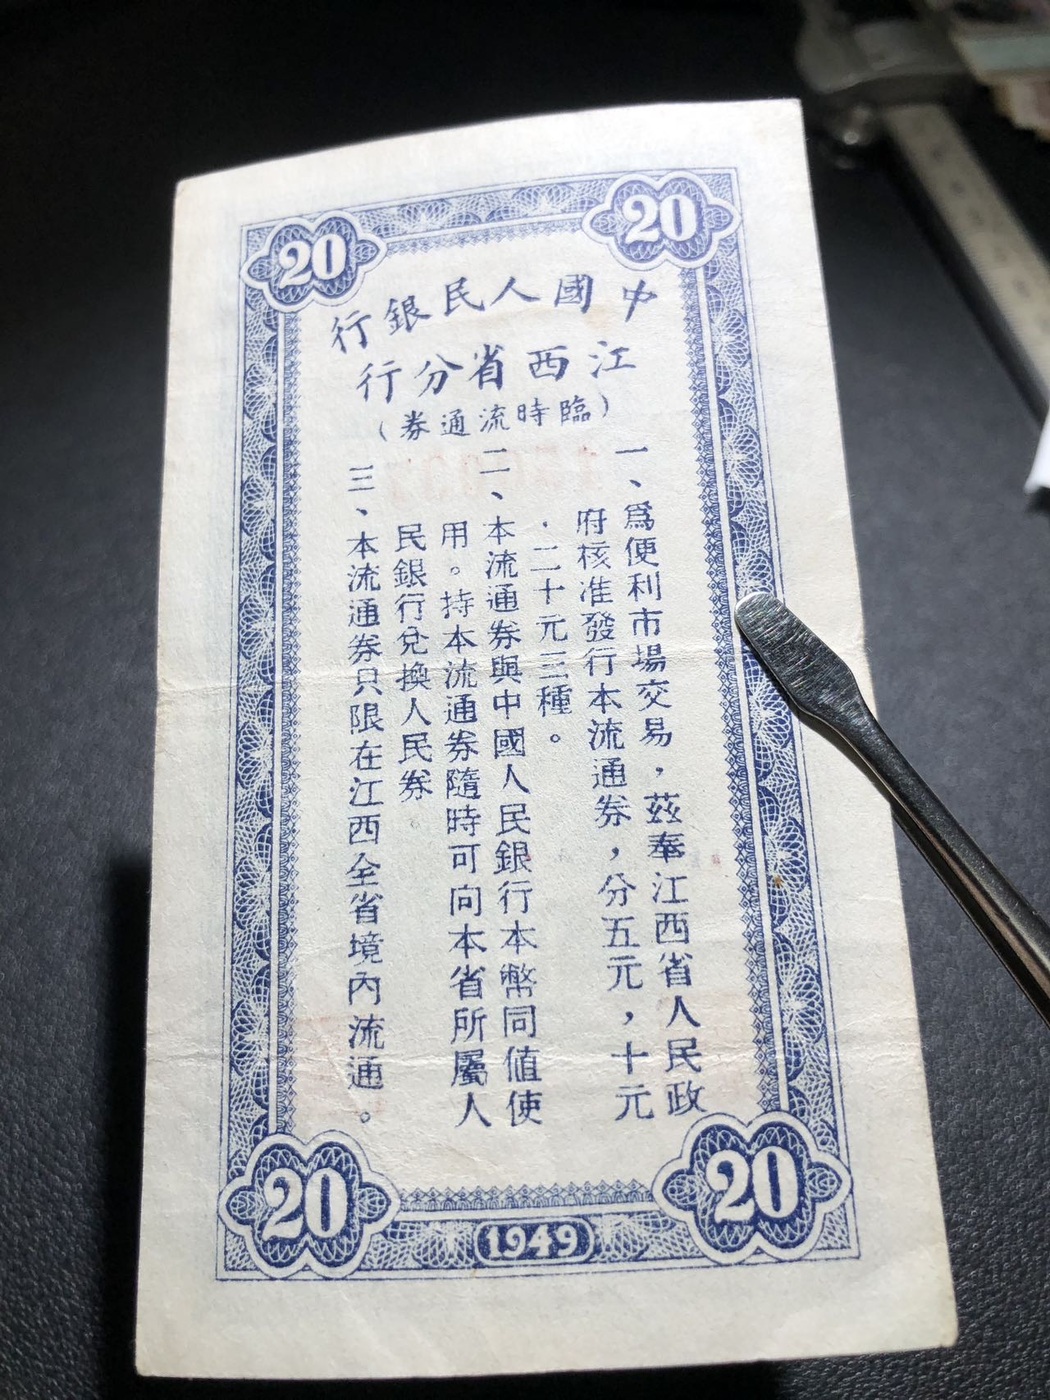 20
20
中國人民銀行
江西省分行
(臨時流通券)
一、爲便利市場交易，茲奉江西省人民政
府核准發行本流通券，分五元，十元
．二十元三種。
二、本流通券與中國人民銀行本幣同值使
用。持本流通券隨時可向本省所屬人
民銀行兌換人民券
三、本流通券只限在江西全省境內流通。
20
1949
20